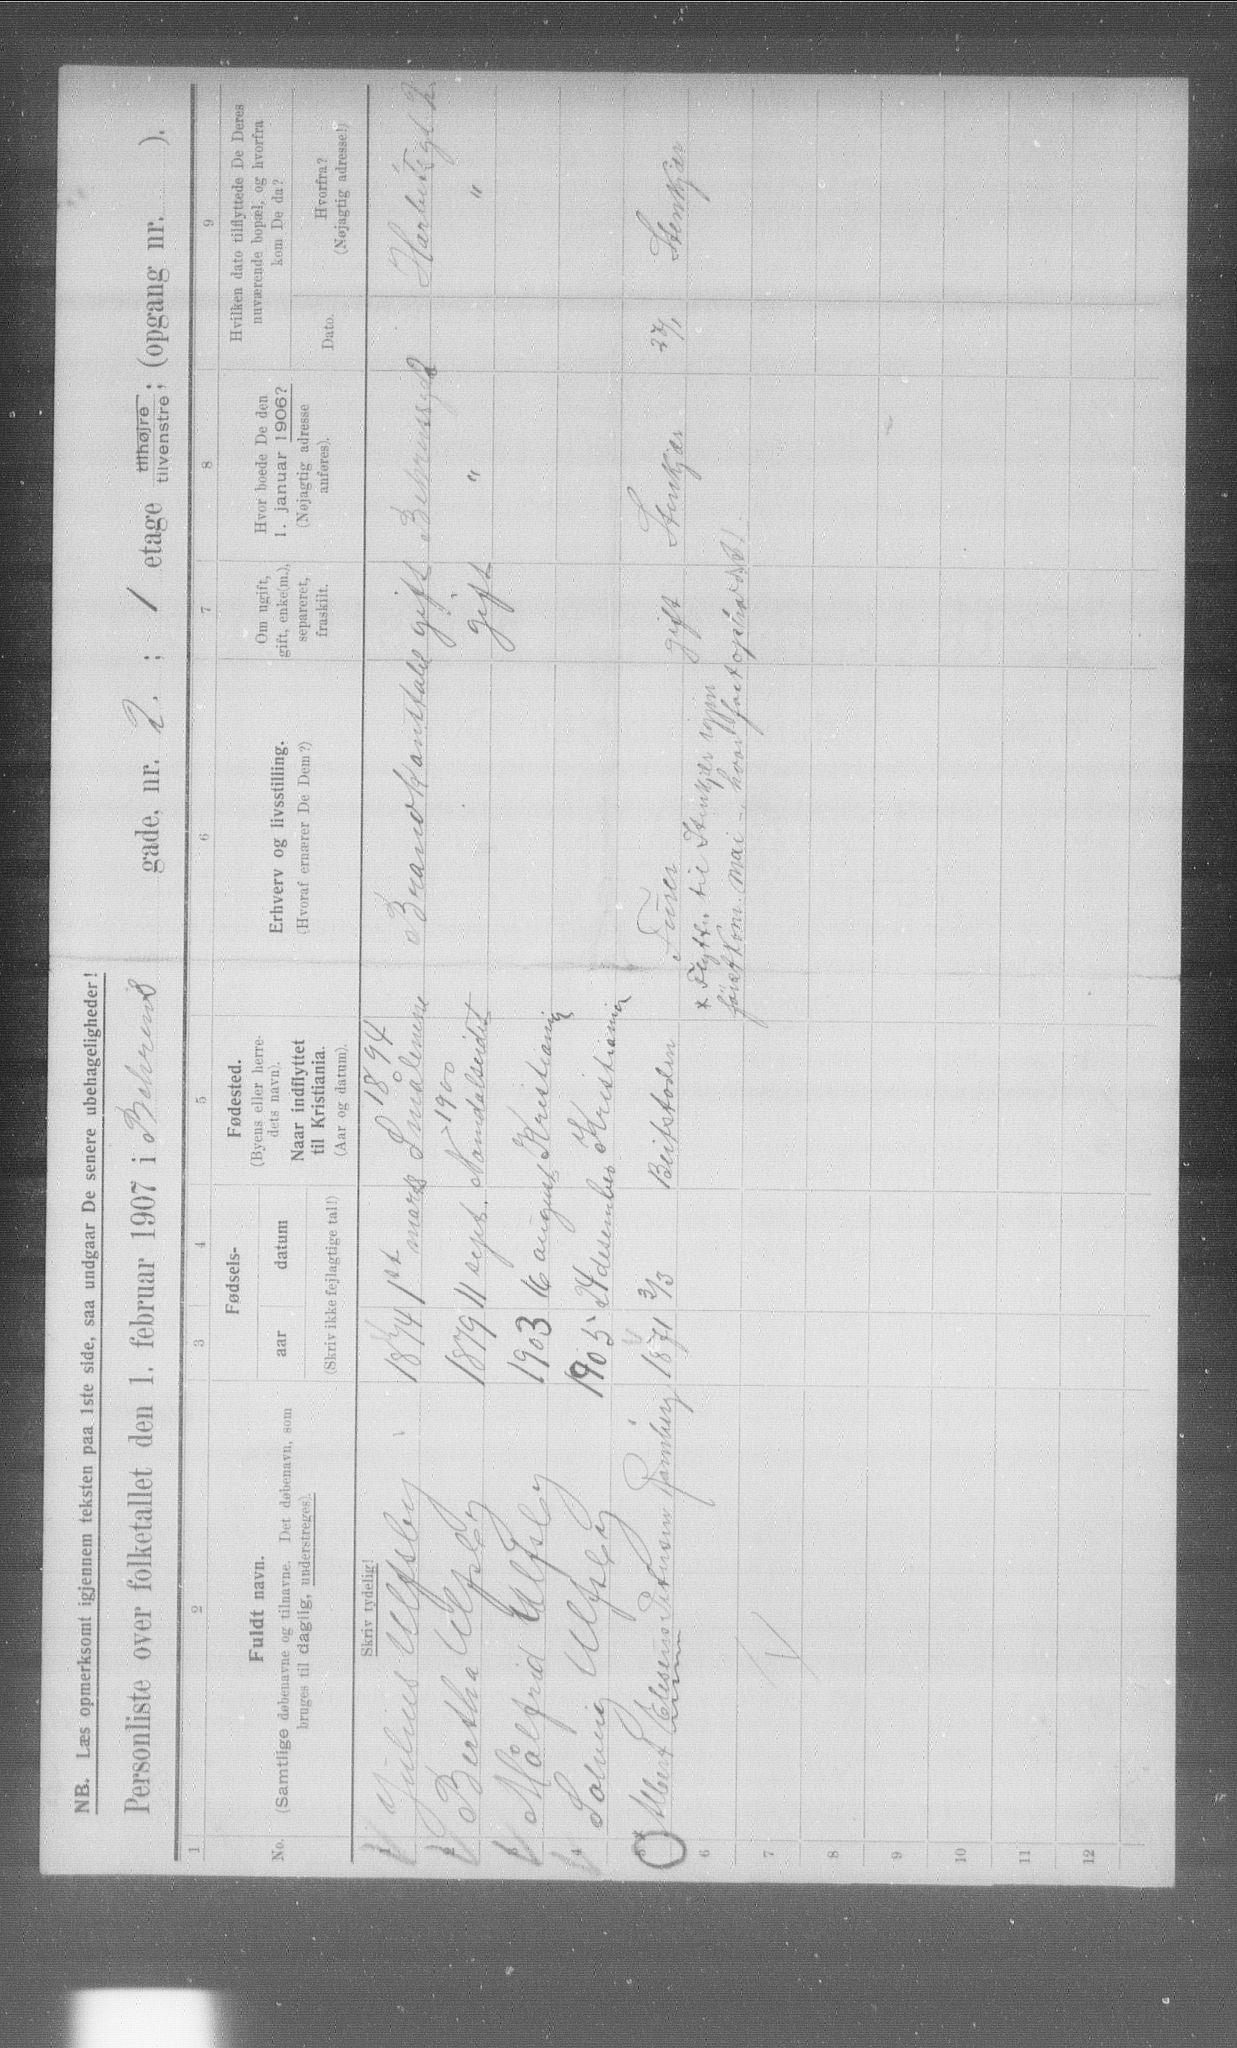 NB. Læs opmerksomt igjennem teksten paa 1ste side, saa undgaar De senere ubehageligheder!
Personliste over folketallet den 1. februar 1907 i Behrens gade, nr. 2. ; 1 etage tilhøjre tilvenstre; (opgang nr. ).
1 2 3 4 5 6 7 8 9
No.
Fuldt navn.
(Samtlige døbenavne og tilnavne. Det døbenavn, som
bruges til daglig, understreges).
Fødsels-
aar datum
(Skriv ikke fejlagtige tal!)
Fødested.
(Byens eller herre-
dets navn).
Naar indflyttet
til Kristiania.
(Aar og datum).
Erhverv og livsstilling.
(Hvoraf ernærer De Dem?)
Om ugift,
gift, enke(m.),
separeret,
fraskilt.
Hvor boede De den
1. januar 1906?
(Nøjagtig adresse
anføres).
Hvilken dato tilflyttede De Deres
nuværende bopæl, og hvorfra
kom De da?
Dato.
Hvorfra?
(Nøjagtig adresse!)
Skriv tydelig!
1 Julius Ulfsby 1874 1st mars Smålenene 1894 Brandkonstabel gift Behrensgd 2
2 Bertha Ulfsby 1879 11 sept. Namdalseidet 1900 gift " "
3 Målfrid Ulfsby 1903 16 august Kristiania
4 Solveig Ulfsby 1905 24 desember Kristiania
5 * Albert 1871 3/3 Beitstaden gift Stenkjær 27/1 Stenkjær
* Flytter til Stenkjær igjen
6
7
8
9
10
11
12